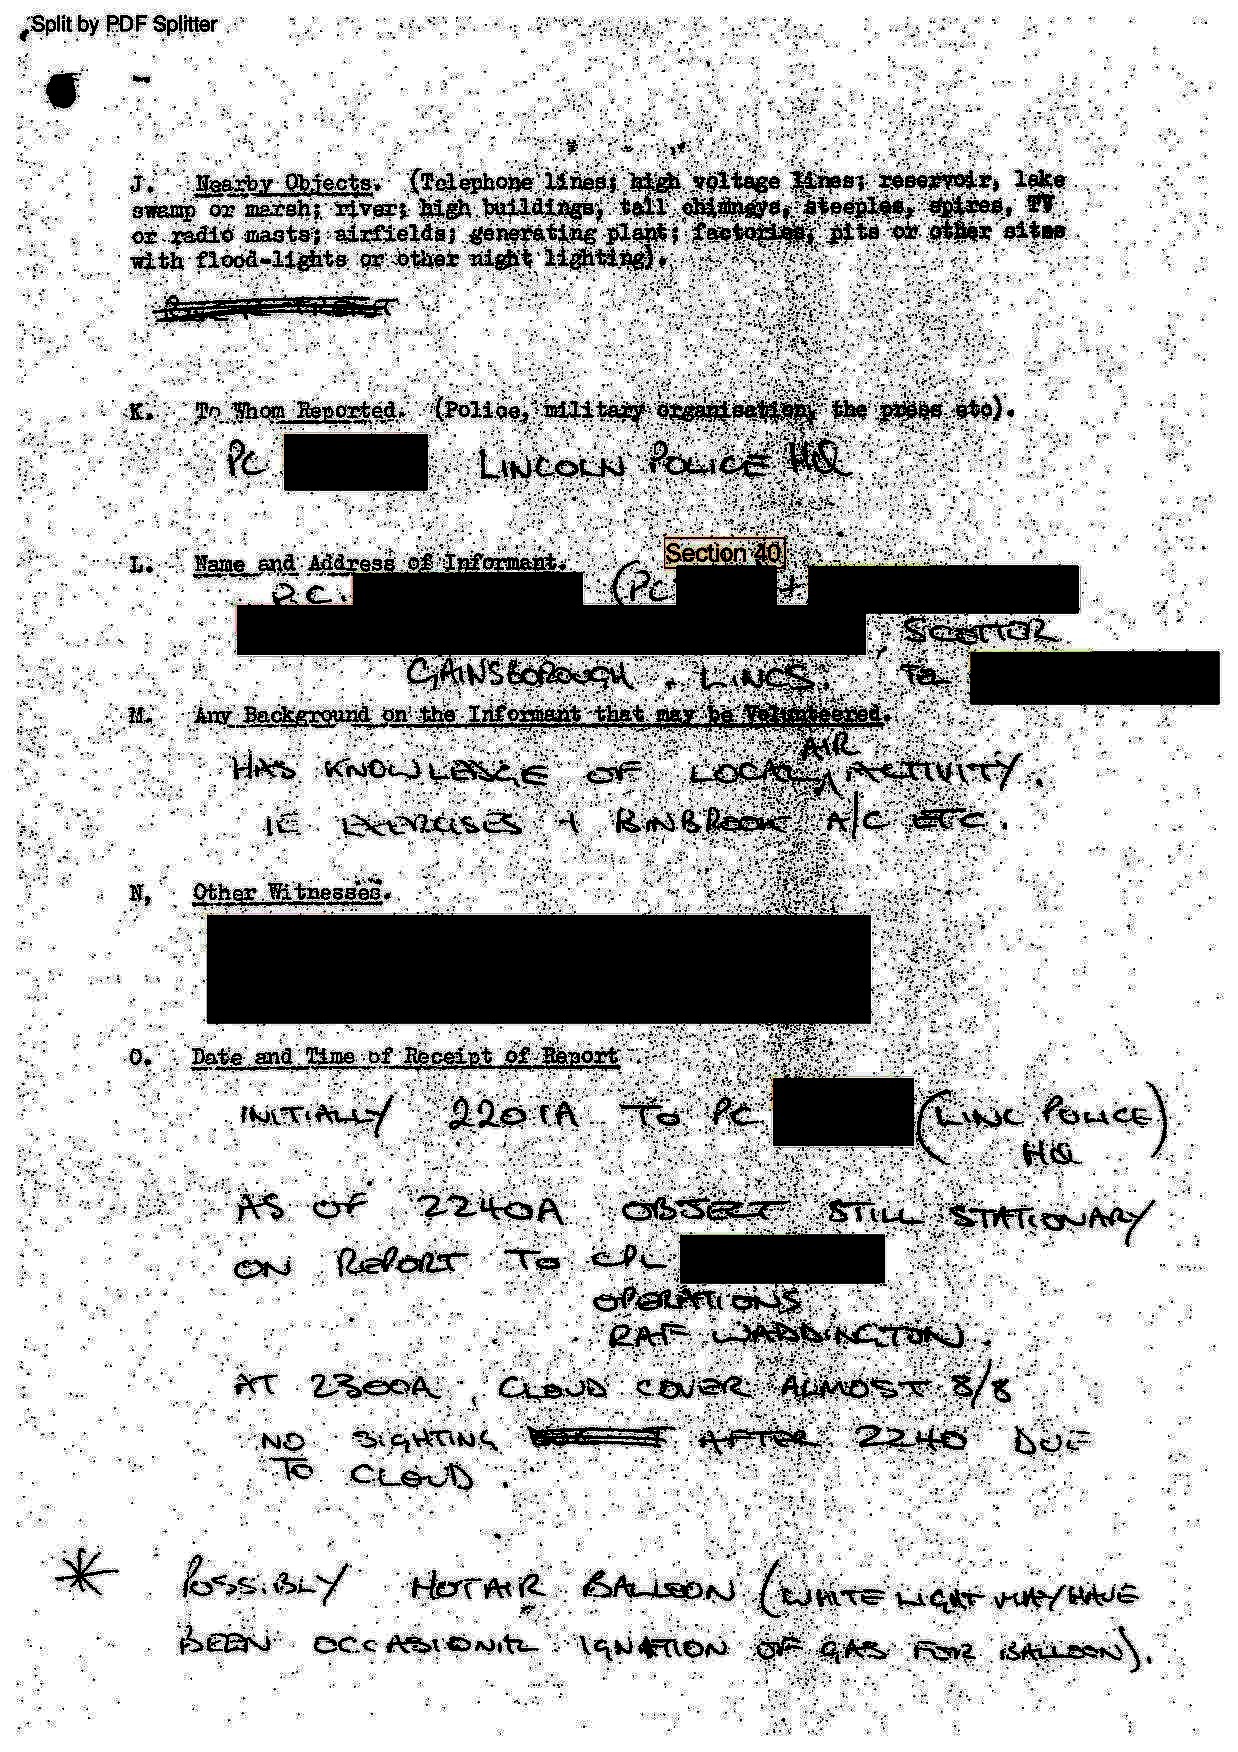 Split by PDF Splitter
J. Nearby Objects. (Telephone lines; high voltage lines; reservoir, lake
swamp or marsh; river; high buildings, tall chimneys, steeples, spires, TV
or radio masts; airfields; generating plant; factories, pits or other sites
with flood-lights or other night lighting).
K. To Whom Reported. (Police, military organisation, the press etc).
PC LINCOLN POLICE HQ
Section 40
L. Name and Address of Informant.
P.C. (PC +
, SCOTTOR
GAINSBOROUGH. LINCS. To
M. Any Background on the Informant that may be Volunteered.
AIR
HAS KNOWLEDGE OF LOCAL ACTIVITY.
IE EXERCISES + BINBROOK A/C ETC.
N, Other Witnesses.
O. Date and Time of Receipt of Report
INITIALLY 2201A TO PC (LINC POLICE)
HQ
AS OF 2240A OBJECT STILL STATIONARY
ON REPORT TO CPL
OPERATIONS
RAF WADDINGTON.
AT 2300A, CLOUD COVER ALMOST 8/8
NO SIGHTING AFTER 2240 DUE
TO CLOUD.
* POSSIBLY HOTAIR BALLOON (WHITE LIGHT MAY HAVE
BEEN OCCASIONIL IGNATION OF GAS FOR BALLOON).